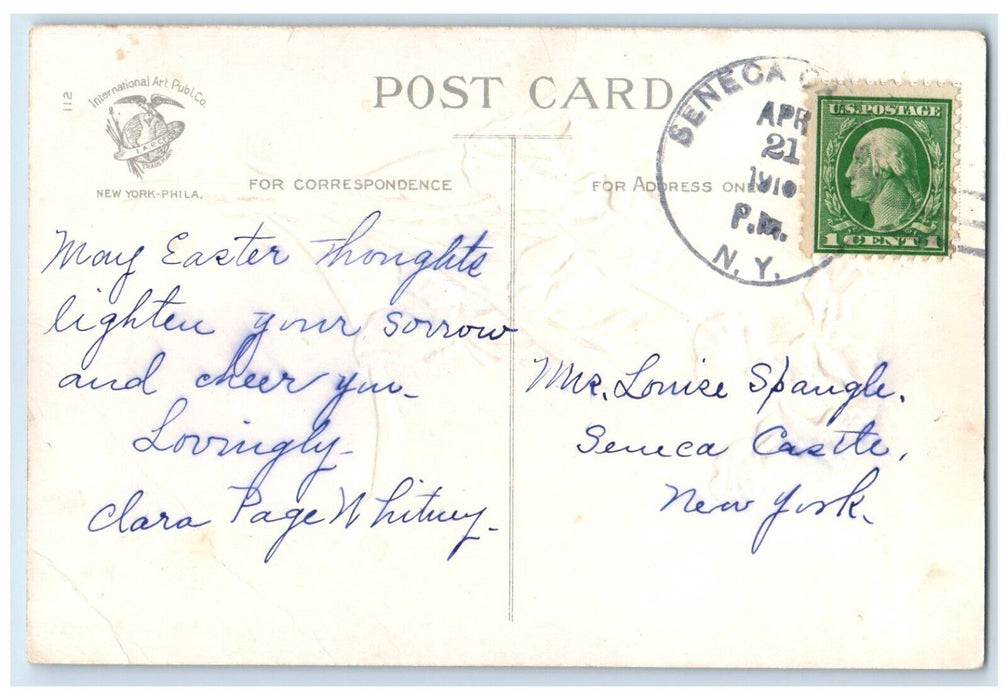 112
International Art Publ. Co.
I.A.P.CO.
TRADE MARK
NEW YORK-PHILA.
POST CARD
FOR CORRESPONDENCE
FOR ADDRESS ON
SENECA C
APR
21
P.M.
N. Y.
U.S. POSTAGE
1 CENT 1
May Easter Thoughts
lighten your sorrow
and cheer you-
Lovingly-
Clara Page Whitney-
Mrs. Louise Spangle.
Seneca Castle,
New York.